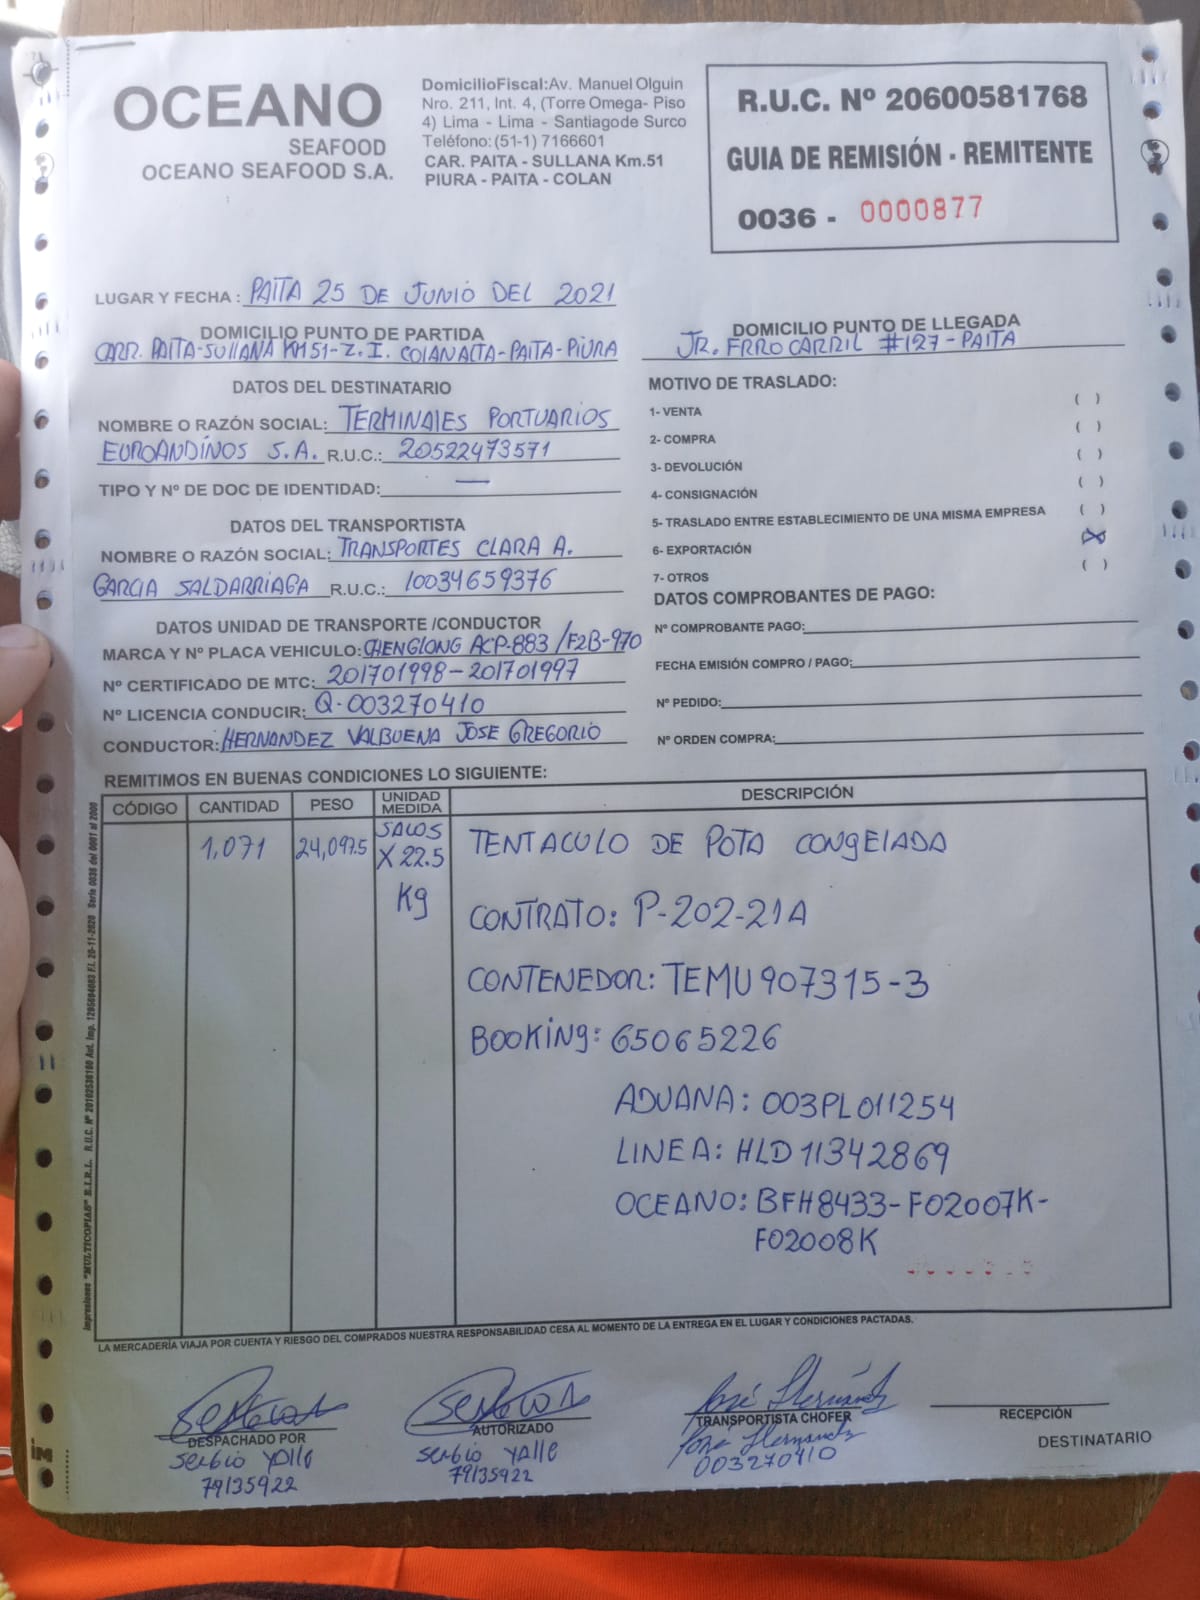 OCEANO
SEAFOOD
OCEANO SEAFOOD S.A.
DomicilioFiscal:Av. Manuel Olguin
Nro. 211, Int. 4, (Torre Omega- Piso
4) Lima - Lima - Santiagode Surco
Teléfono:(51-1) 7166601
CAR. PAITA - SULLANA Km.51
PIURA - PAITA - COLAN
R.U.C. Nº 20600581768
GUIA DE REMISIÓN - REMITENTE
0036 - 0000877
LUGAR Y FECHA : PAITA 25 DE JUNIO DEL 2021
DOMICILIO PUNTO DE PARTIDA
CARR. PAITA-SULLANA KM 51-Z.I. COLAN ALTA-PAITA-PIURA
DOMICILIO PUNTO DE LLEGADA
JR. FRROCARRIL #127-PAITA
DATOS DEL DESTINATARIO
NOMBRE O RAZÓN SOCIAL: TERMINALES PORTUARIOS
EUROANDINOS S.A. R.U.C.: 20522473571
TIPO Y Nº DE DOC DE IDENTIDAD: —
DATOS DEL TRANSPORTISTA
NOMBRE O RAZÓN SOCIAL: TRANSPORTES CLARA A.
GARCIA SALDARRIAGA R.U.C.: 10034659376
DATOS UNIDAD DE TRANSPORTE /CONDUCTOR
MARCA Y Nº PLACA VEHICULO: CHENGLONG ACP-883 /F2B-970
Nº CERTIFICADO DE MTC: 201701998-201701997
Nº LICENCIA CONDUCIR: Q-003270410
CONDUCTOR: HERNANDEZ VALBUENA JOSE GREGORIO
MOTIVO DE TRASLADO:
1- VENTA ( )
2- COMPRA ( )
3- DEVOLUCIÓN ( )
4- CONSIGNACIÓN ( )
5- TRASLADO ENTRE ESTABLECIMIENTO DE UNA MISMA EMPRESA ( )
6- EXPORTACIÓN (X)
7- OTROS ( )
DATOS COMPROBANTES DE PAGO:
Nº COMPROBANTE PAGO:
FECHA EMISIÓN COMPRO / PAGO:
Nº PEDIDO:
Nº ORDEN COMPRA:
REMITIMOS EN BUENAS CONDICIONES LO SIGUIENTE:
CÓDIGO CANTIDAD PESO UNIDAD MEDIDA DESCRIPCIÓN
1,071 24,097.5 SACOS X 22.5 Kg TENTACULO DE POTA CONGELADA
CONTRATO: P-202-21A
CONTENEDOR: TEMU907315-3
BOOKING: 65065226
ADUANA: 003PL011254
LINEA: HLD11342869
OCEANO: BFH8433-F02007K-
F02008K
Impresiones "MULTICOPIAS" E.I.R.L. R.U.C. Nº 20102536160 Aut. Imp. 1295694083 F.I. 20-11-2020 Serie 0036 del 0001 al 2000
LA MERCADERÍA VIAJA POR CUENTA Y RIESGO DEL COMPRADOS NUESTRA RESPONSABILIDAD CESA AL MOMENTO DE LA ENTREGA EN EL LUGAR Y CONDICIONES PACTADAS.
DESPACHADO POR
Sergio Yalle
79135922
AUTORIZADO
Sergio Yalle
79135922
José Hernández
TRANSPORTISTA CHOFER
Jose Hernandez
003270410
RECEPCIÓN
DESTINATARIO
IM